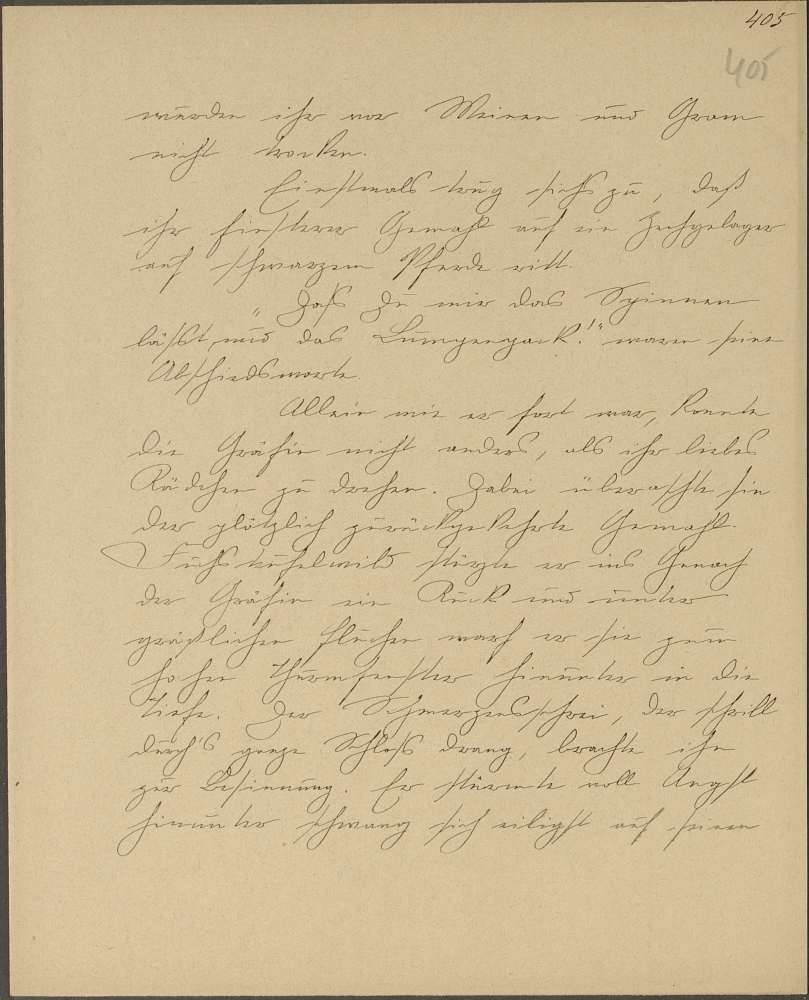 405
405
wurden ihr vor Weinen und Gram
nicht trocken.
Einstmals trug sichs zu, daß
ihr finsterer Gemahl auf ein Zechgelager
auf schwarzem Pferde ritt.
" Daß Du mir das Spinnen
läßt, und das Lumpenpack!" waren seine
Abschiedsworte.
Allein wie er fort war, konnte
die Gräfin nicht anders, als ihr liebes
Rädchen zu drehen. Dabei überraschte sie
der plötzlich zurückgekehrte Gemahl.
Fuchsteufelwild stürzte er ins Gemach
der Gräfin ein Ruck und unter
gräßlichen Flüchen warf er sie zum
hohen Thurmfenster hinunter in die
Tiefe. Der Schmerzensschrei, der schrill
durch's ganze Schloß drang, brachte ihn
zur Besinnung. Er stürmte voll Angst
hinunter schwang sich eiligst auf seinen